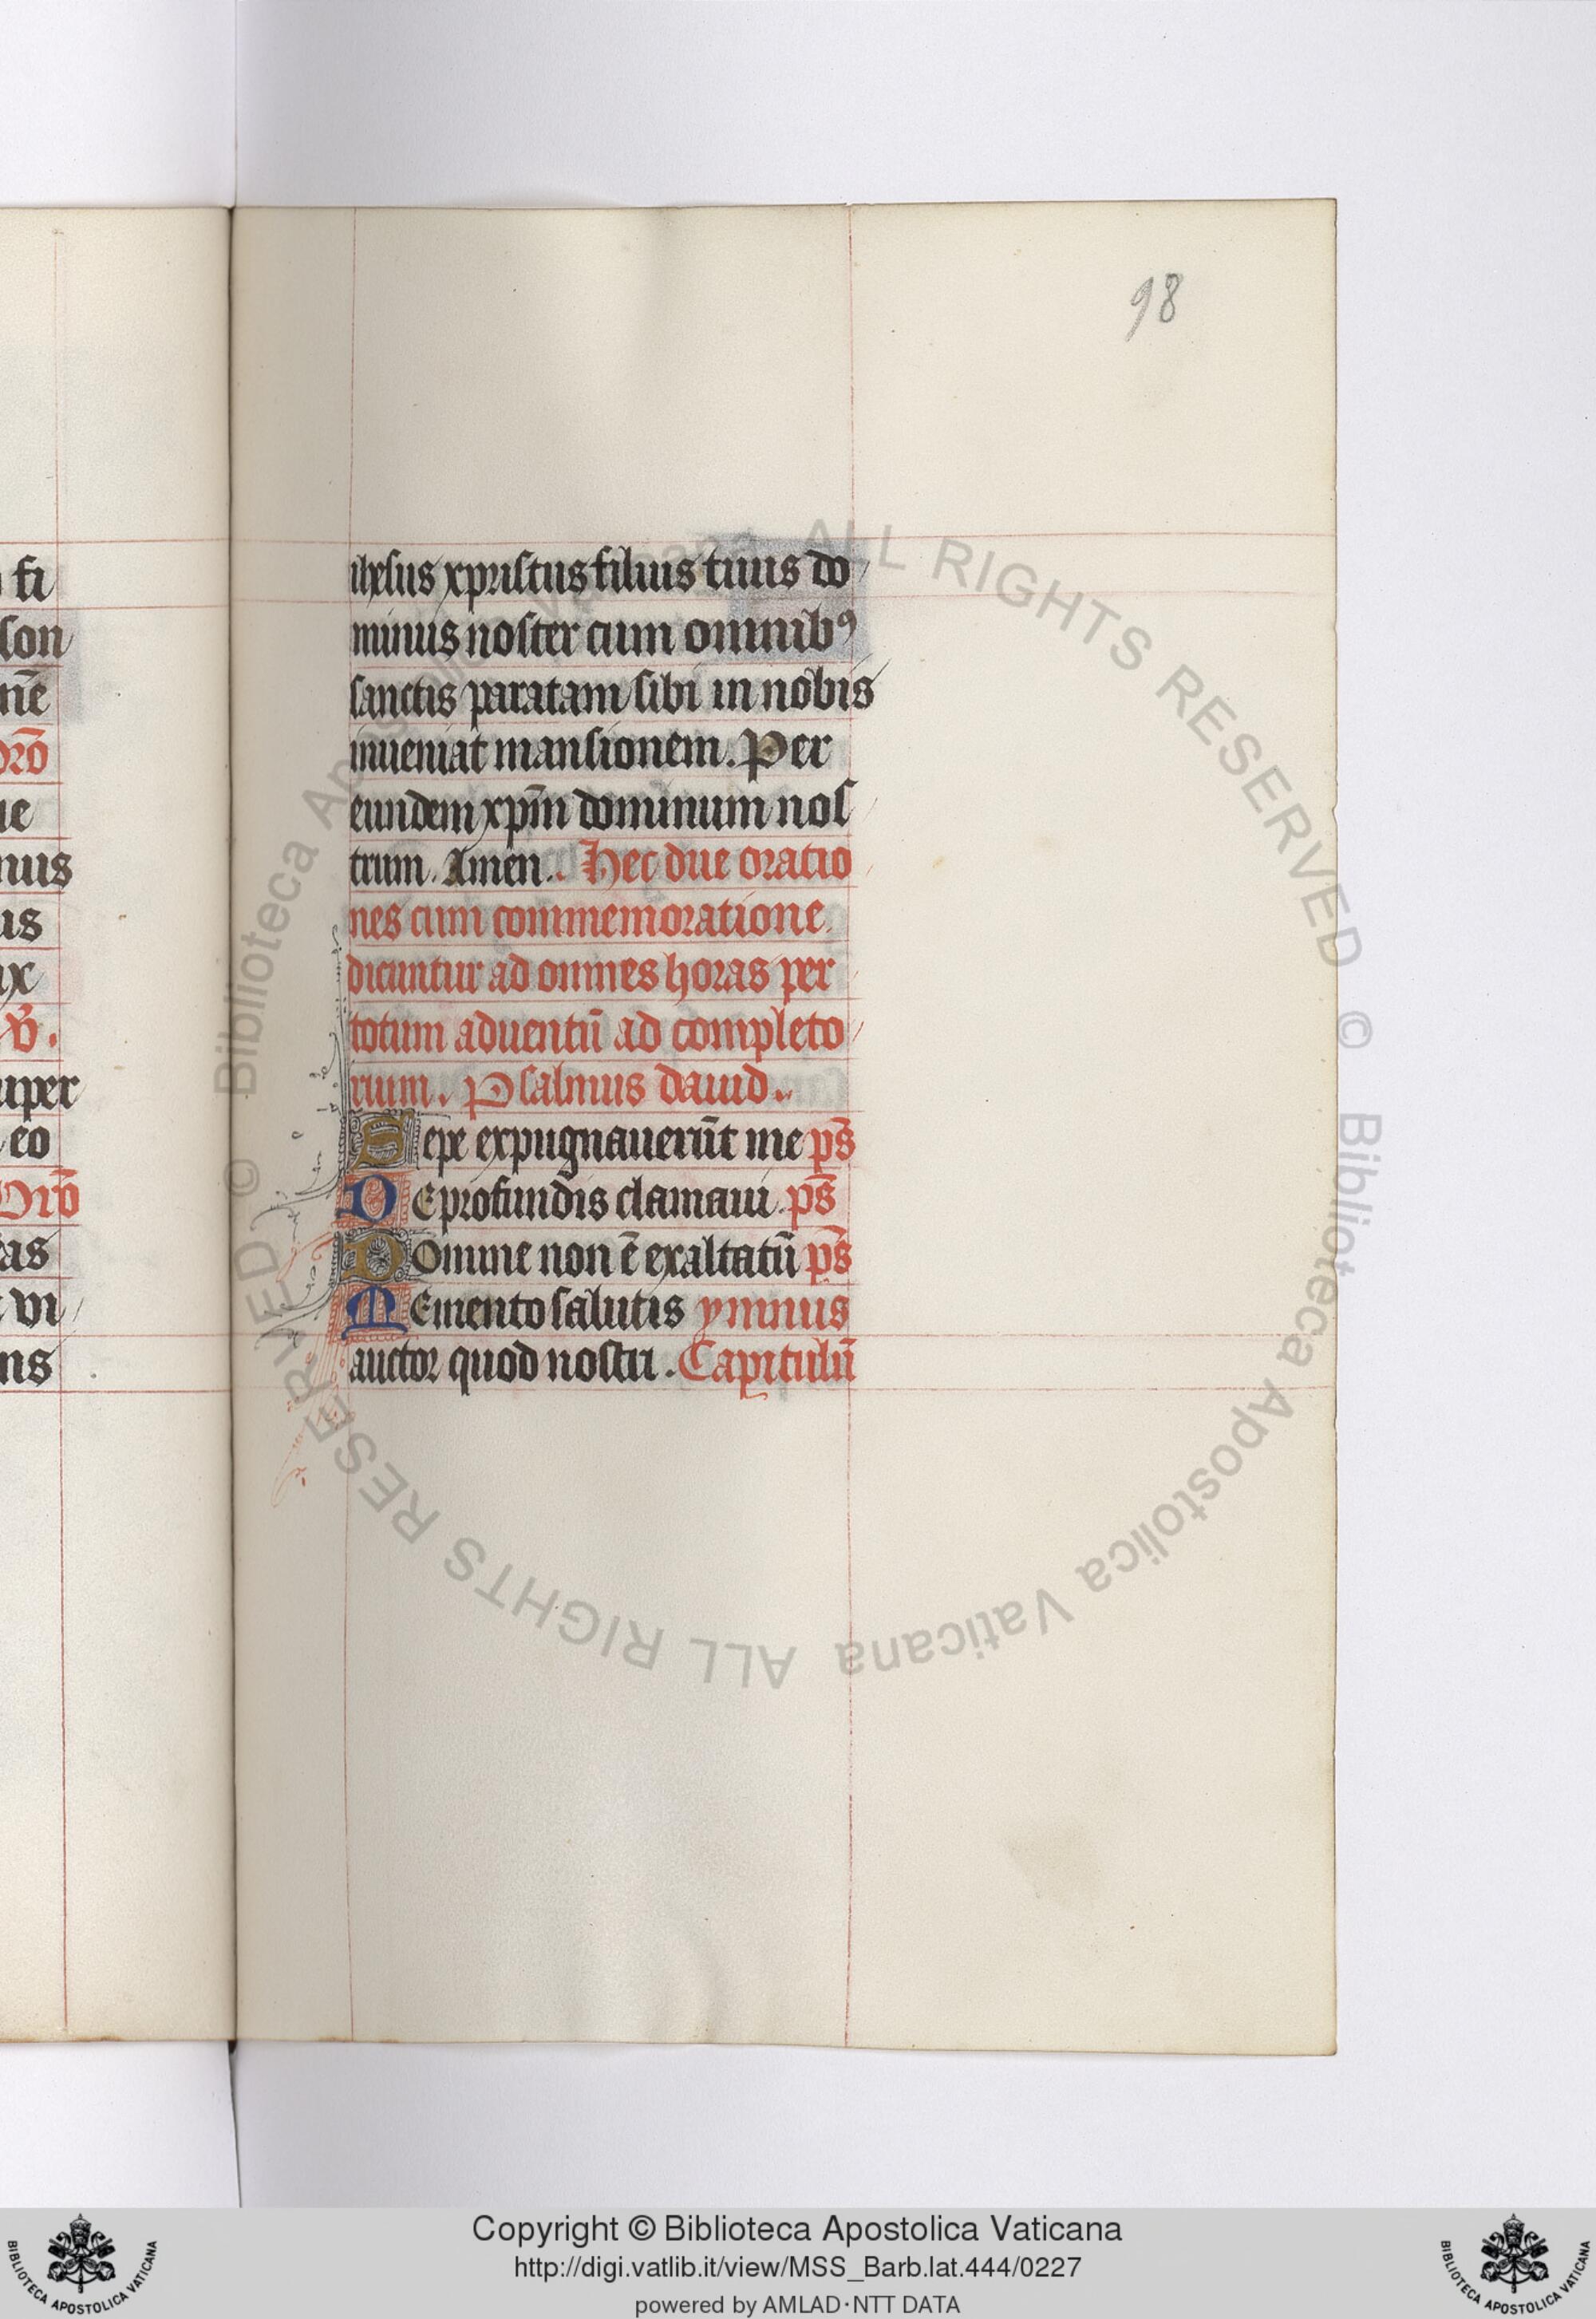 98
fi
son
nē
orō
ue
nus
us
ix
v̄.
uper
eo
Orō
as
vi
ns
ihesus xpristus filius tuus do
minus noster cum omnibꝰ
sanctis paratam sibi in nobis
inueniat mansionem. Per
eundem xp̄m dominum nos
trum. Amen. Hec due oratio
nes cum commemoratione
dicuntur ad omnes horas per
totum aduentū ad completo
rium. Psalmus dauid.
Sepe expugnauerūt me ps̄
De profundis clamaui. ps̄
Domine non ē exaltatū ps̄
Memento salutis ymnus
auctor quod nostri. Capitulū
Biblioteca Apostolica Vaticana ALL RIGHTS RESERVED © Biblioteca Apostolica Vaticana ALL RIGHTS RESERVED ©
Copyright © Biblioteca Apostolica Vaticana
http://digi.vatlib.it/view/MSS_Barb.lat.444/0227
powered by AMLAD·NTT DATA
BIBLIOTECA APOSTOLICA VATICANA
BIBLIOTECA APOSTOLICA VATICANA